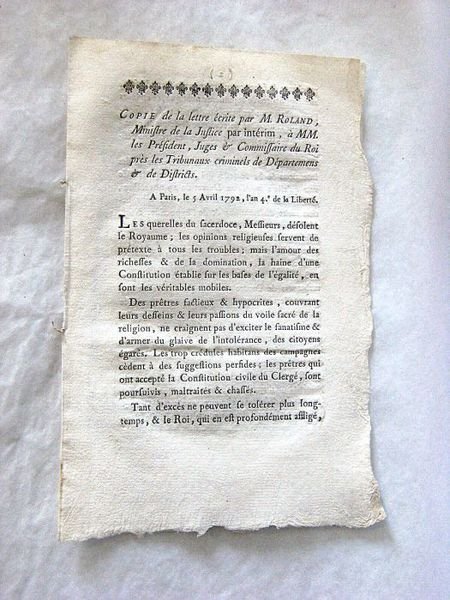 ( 2 )
COPIE de la lettre écrite par M. ROLAND,
Ministre de la Justice par intérim, à MM.
les Président, Juges & Commissaire du Roi
près les Tribunaux criminels de Départemens
& de Districts.
A Paris, le 5 Avril 1792, l'an 4.e de la Liberté.
LES querelles du sacerdoce, Messieurs, désolent
le Royaume ; les opinions religieuses servent de
prétexte à tous les troubles ; mais l'amour des
richesses & de la domination, la haine d'une
Constitution établie sur les bases de l'égalité, en
sont les véritables mobiles.
Des prêtres factieux & hypocrites, couvrant
leurs desseins & leurs passions du voile sacré de la
religion, ne craignent pas d'exciter le fanatisme &
d'armer du glaive de l'intolérance, des citoyens
égarés. Les trop crédules habitans des campagnes
cèdent à des suggestions perfides ; les prêtres qui
ont accepté la Constitution civile du Clergé, sont
poursuivis, maltraités & chassés.
Tant d'excès ne peuvent se tolérer plus long-
temps, & le Roi, qui en est profondément affligé,